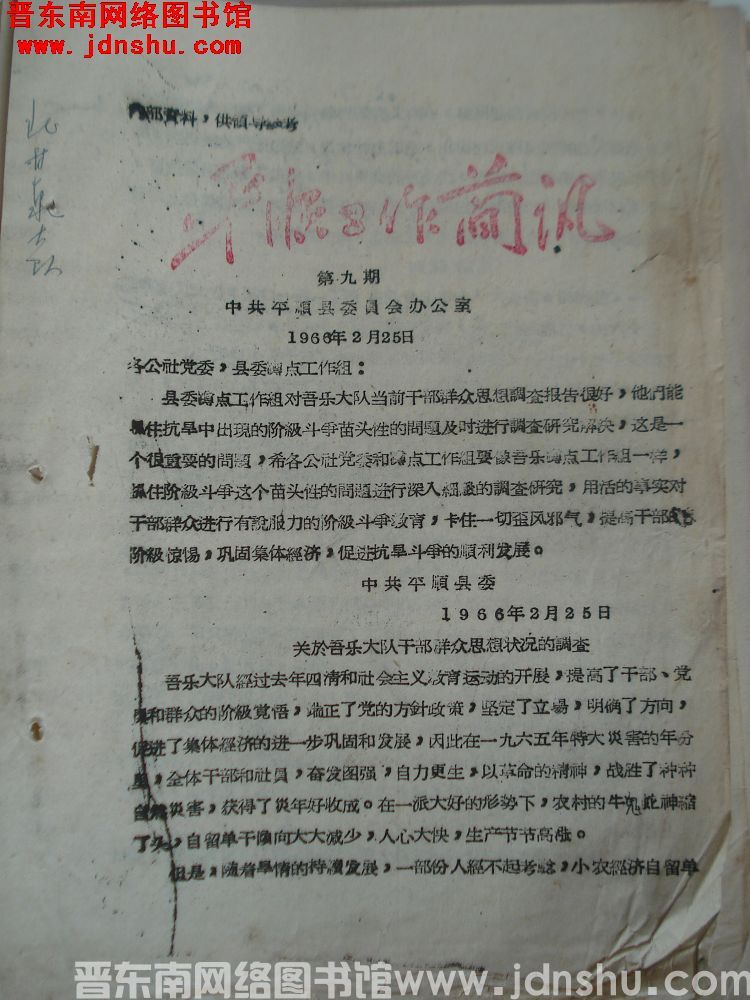 晋东南网络图书馆
www.jdnshu.com
部資料，供領导参考
北甘泉大队
平顺工作简讯
第九期
中共平順县委員会办公室
1966年2月25日
各公社党委，县委蹲点工作組：
县委蹲点工作組对吾乐大队当前干部群众思想調查报告很好，他們能
抓住抗旱中出現的阶級斗爭苗头性的問題及时进行調查研究解决，这是一
个很重要的問題，希各公社党委和蹲点工作組要像吾乐蹲点工作組一样，
抓住阶級斗爭这个苗头性的問題进行深入細致的調查研究，用活的事实对
干部群众进行有說服力的阶級斗爭教育，卡住一切歪风邪气，提高干部群众
阶級惊惕，巩固集体經济，促进抗旱斗爭的順利发展。
中共平順县委
1966年2月25日
关於吾乐大队干部群众思想状况的調查
吾乐大队經过去年四清和社会主义教育运动的开展，提高了干部、党
員和群众的阶級覚悟，端正了党的方針政策，坚定了立場，明确了方向，
促进了集体經济的进一步巩固和发展，因此在一九六五年特大災害的年分
里，全体干部和社員，奋发图强，自力更生，以革命的精神，战胜了种种
自然災害，获得了災年好收成。在一派大好的形势下，农村的牛鬼蛇神縮
了头，自留单干傾向大大减少，人心大快，生产节节高涨。
但是，随着旱情的持續发展，一部份人經不起考驗，小农經济自留单
晋东南网络图书馆www.jdnshu.com